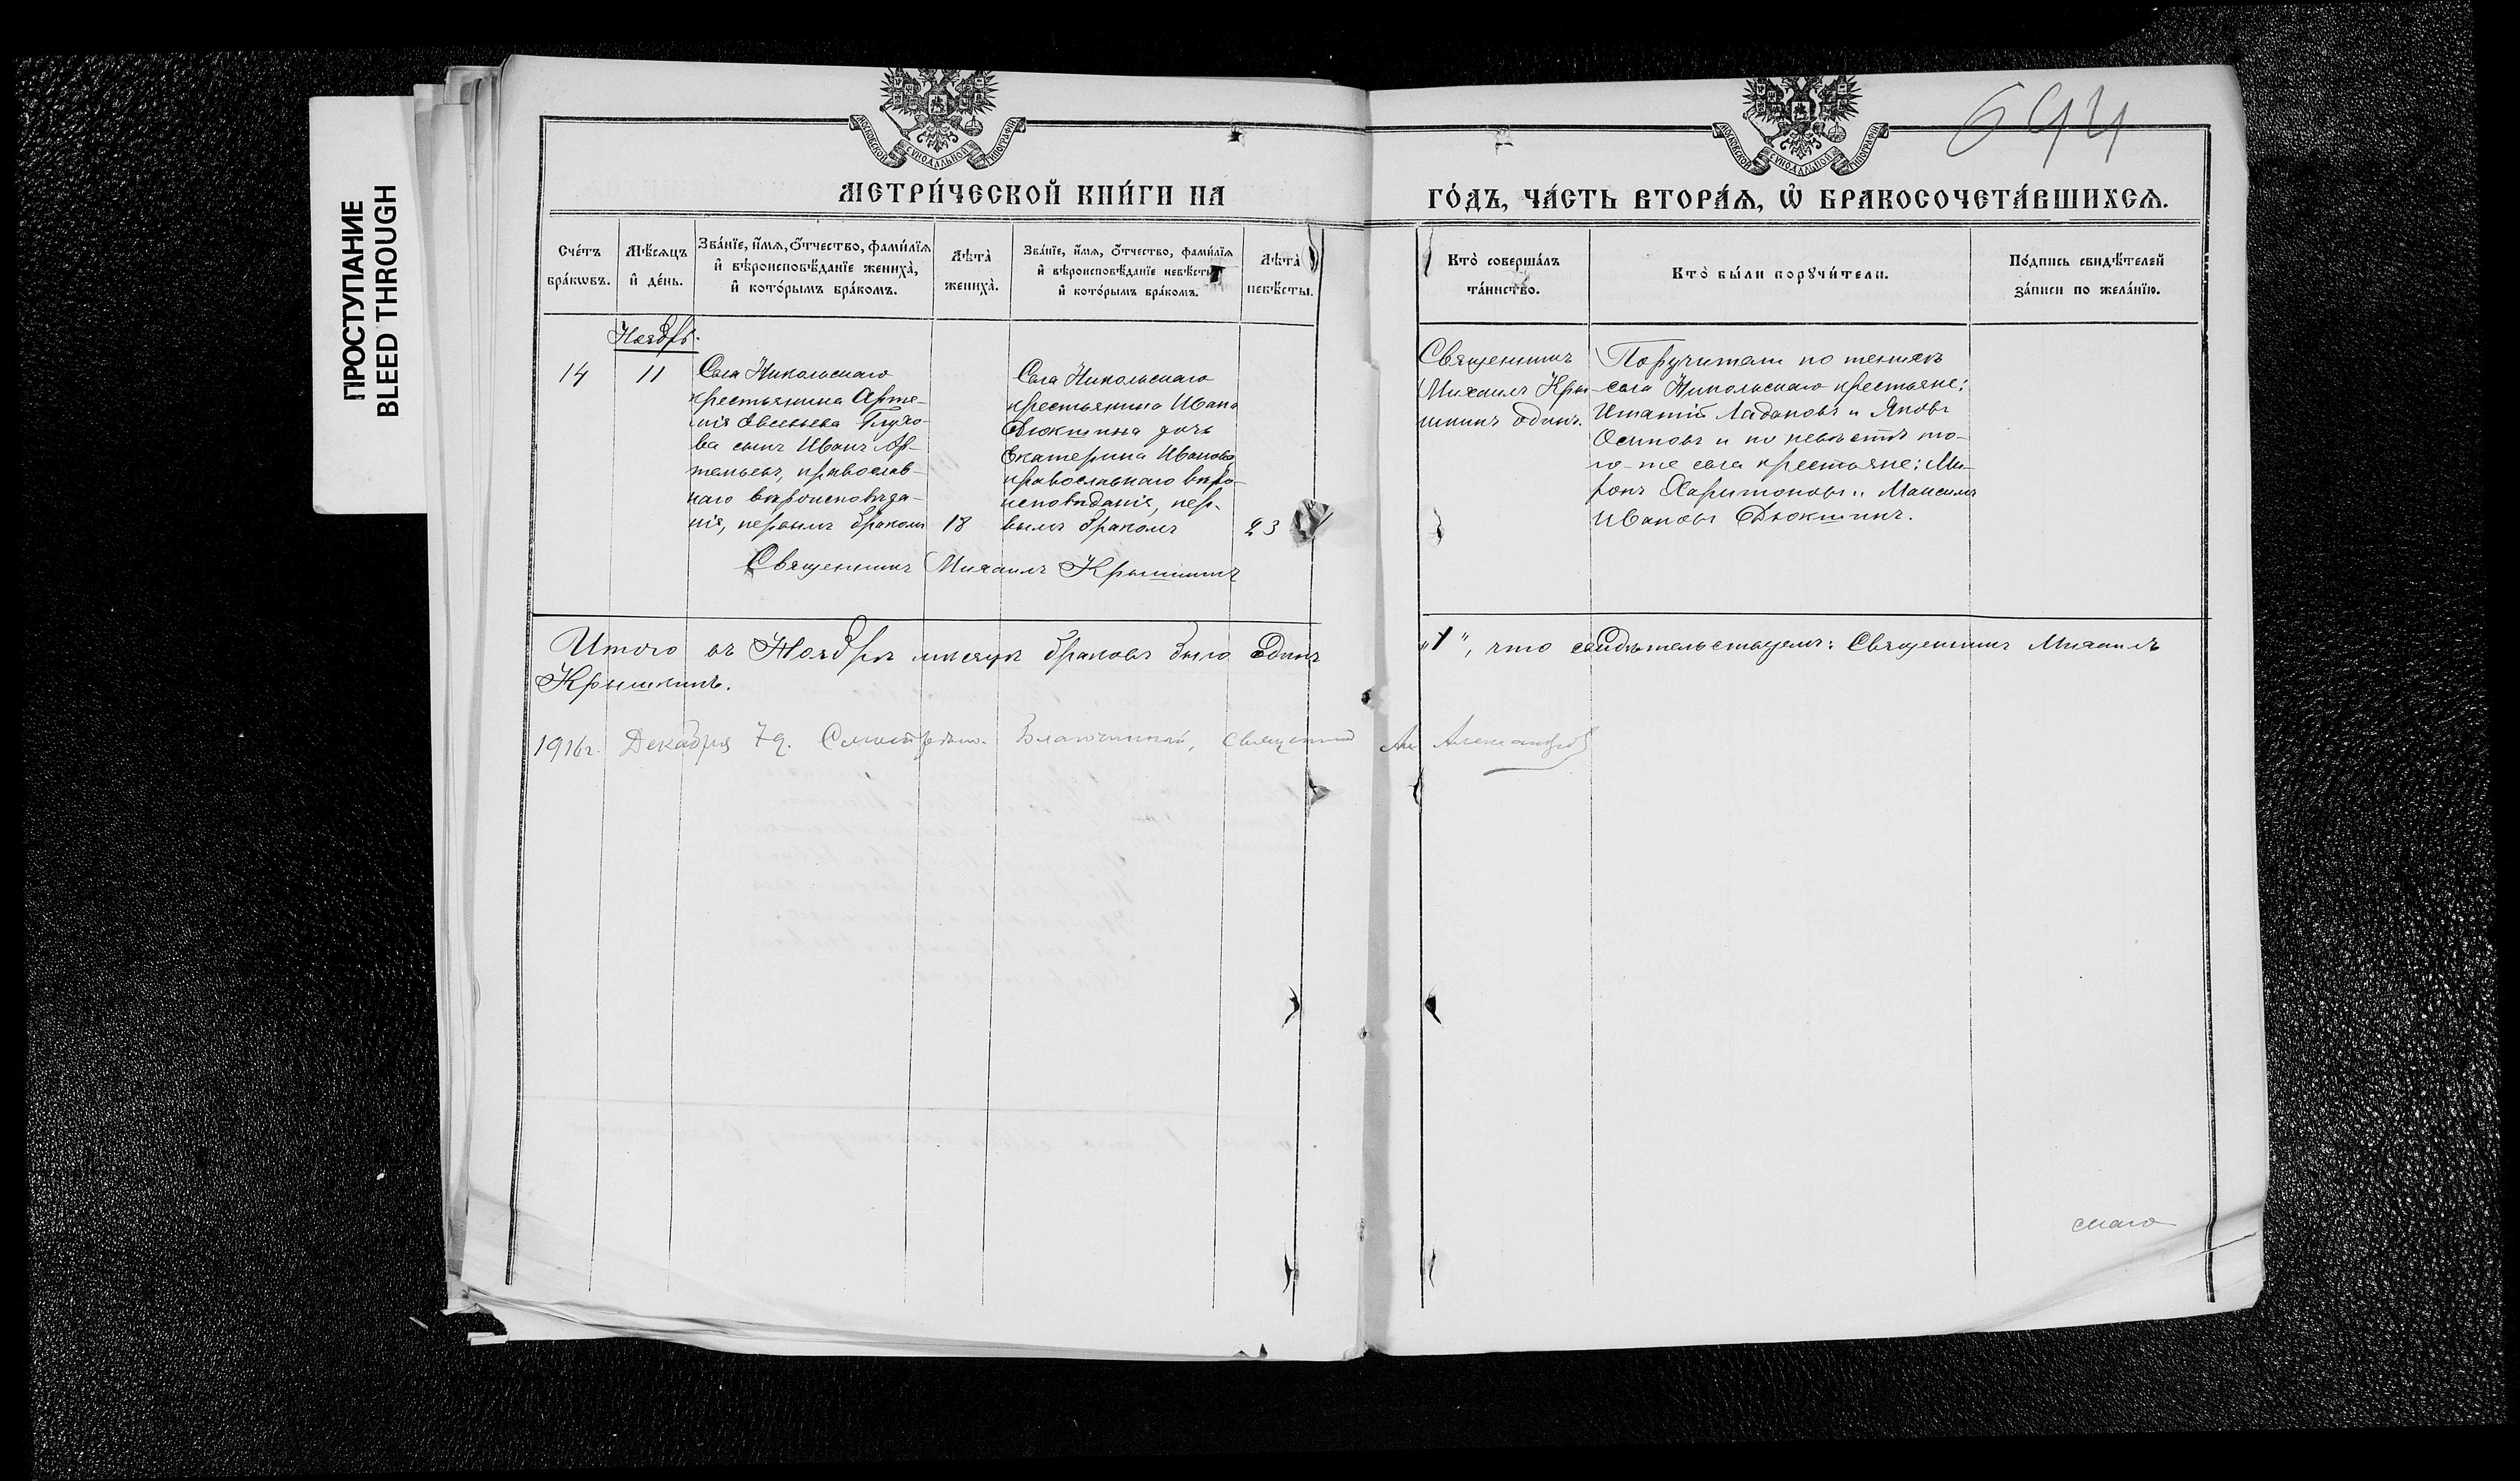 ПРОСТУПАНИЕ
BLEED THROUGH
МОСКОВСКОЙ СУНОДАЛЬНОЙ ТИПОГРАФІИ
МОСКОВСКОЙ СУНОДАЛЬНОЙ ТИПОГРАФІИ
644
МЕТРИ́ЧЕСКОЙ КНИ́ГИ НА
ГО́ДЪ, ЧА́СТЬ ВТОРА́Ѧ, Ѽ БРАКОСОЧЕТА́ВШИХСѦ.
Сче́тъ
бра́кѡвъ.
Мѣ́сѧцъ
и҆ де́нь.
Зва́нїе, и҆́мѧ, ѻ҆́тчество, фами́лїѧ
и҆ вѣроисповѣ́данїе жениха̀,
и҆ кото́рымъ бра́комъ.
Лѣта̀
жениха̀.
Зва́нїе, и҆́мѧ, ѻ҆́тчество, фами́лїѧ
и҆ вѣроисповѣ́данїе невѣ́сты
и҆ кото́рымъ бра́комъ.
Лѣта̀
невѣ́сты.
Кто̀ соверша́лъ
та́инство.
Кто̀ бы́ли порꙋчи́тели.
По́дпись свидѣ́телей
за́писи по жела́нїю.
Ноябрь.
14
11
Села Никольскаго
крестьянина Арте-
мія Евсеньева Глухо-
ва сынъ Иванъ Ар-
темьевъ, православ-
наго вѣроисповѣда-
нія, первымъ бракомъ
18
Села Никольскаго
крестьянина Ивана
Дюкшина дочь
Екатерина Иванова
православнаго вѣро-
исповѣданія, пер-
вымъ бракомъ
23
Священникъ
Михаилъ Кры
шкинъ одинъ.
Поручители по женихѣ
села Никольскаго крестьяне:
Игнатій Ладановъ и Яковъ
Осиповъ и по невѣстѣ то-
го-же села крестьяне: Ми-
ронъ Харитоновъ и Максимъ
Ивановъ Дюкшинъ.
Священникъ Михаилъ Крышкинъ
Итого въ Ноябрѣ мѣсяцѣ браковъ было одинъ
„1", что свидѣтельствуемъ: Священникъ Михаилъ
Крышкинъ.
1916 г. Декабря 7 д. Смотрѣлъ. Благочинный, Священникъ Ал Александров